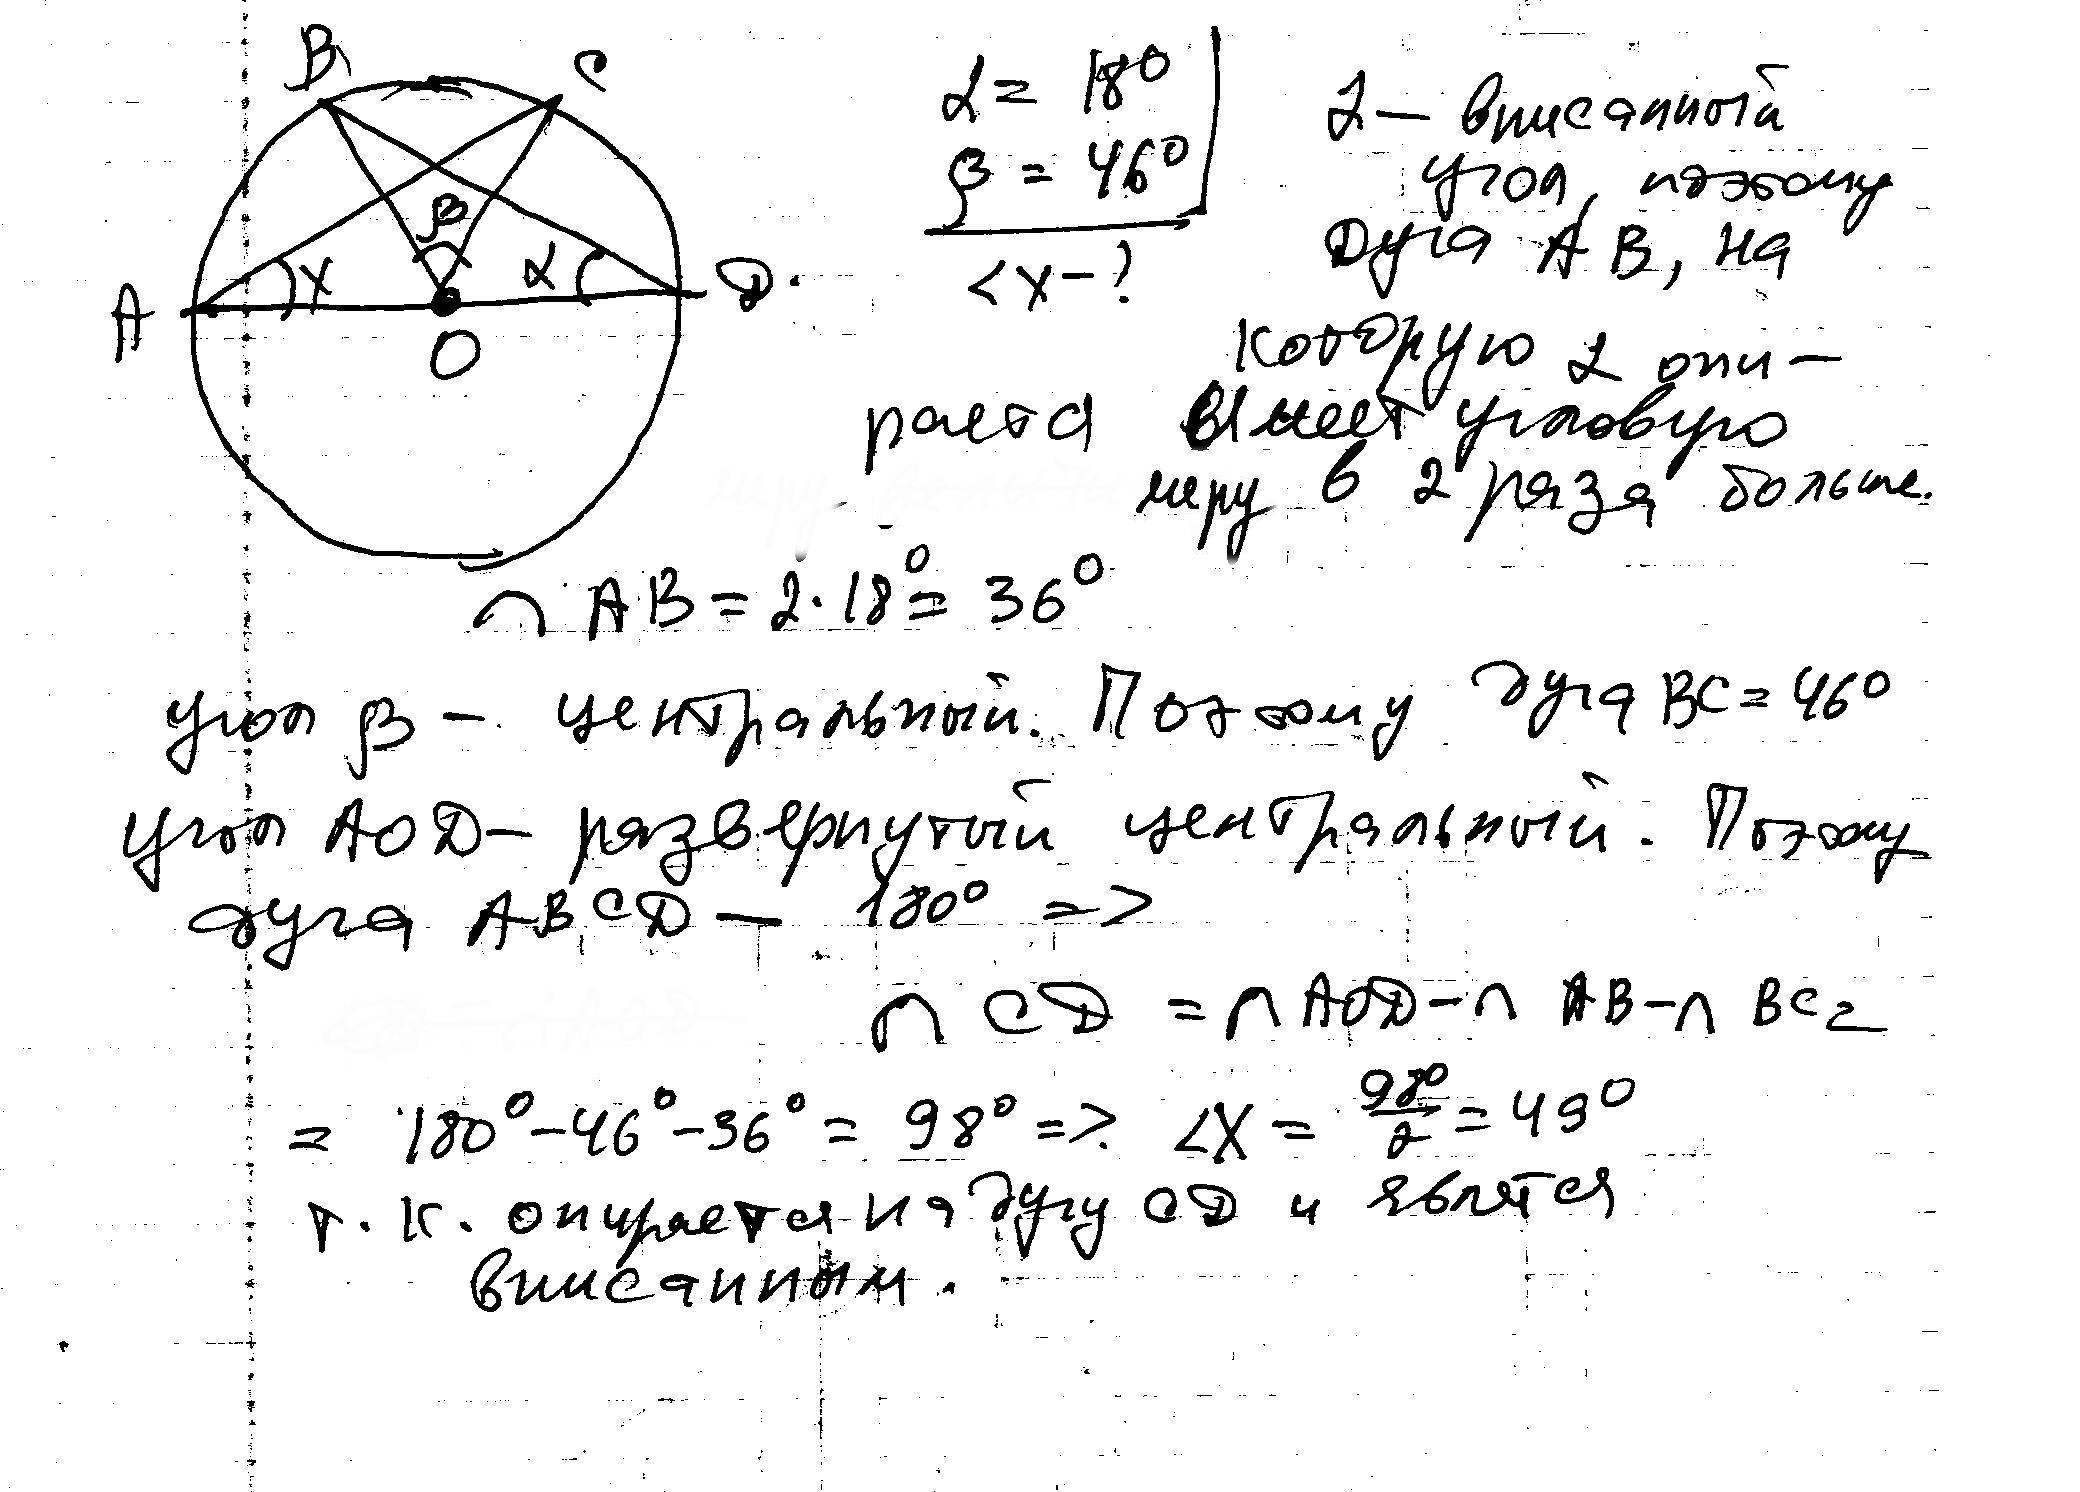 B C
A X β α D
O
α = 18°
β = 46°
<x-?
α — вписанный
угол, поэтому
Дуга AB, на
которую α опи-
рается имеет угловую
меру в 2 раза больше.
∩ AB = 2·18° = 36°
угол β — центральный. Поэтому дуга BC = 46°
угол AOD — развернутый центральный. Поэтому
дуга ABCD — 180° =>
∩ CD = ∩ AOD - ∩ AB - ∩ BC =
= 180° - 46° - 36° = 98° => <X = 98°/2 = 49°
т.к. опирается на дугу CD и являтся
вписанным.